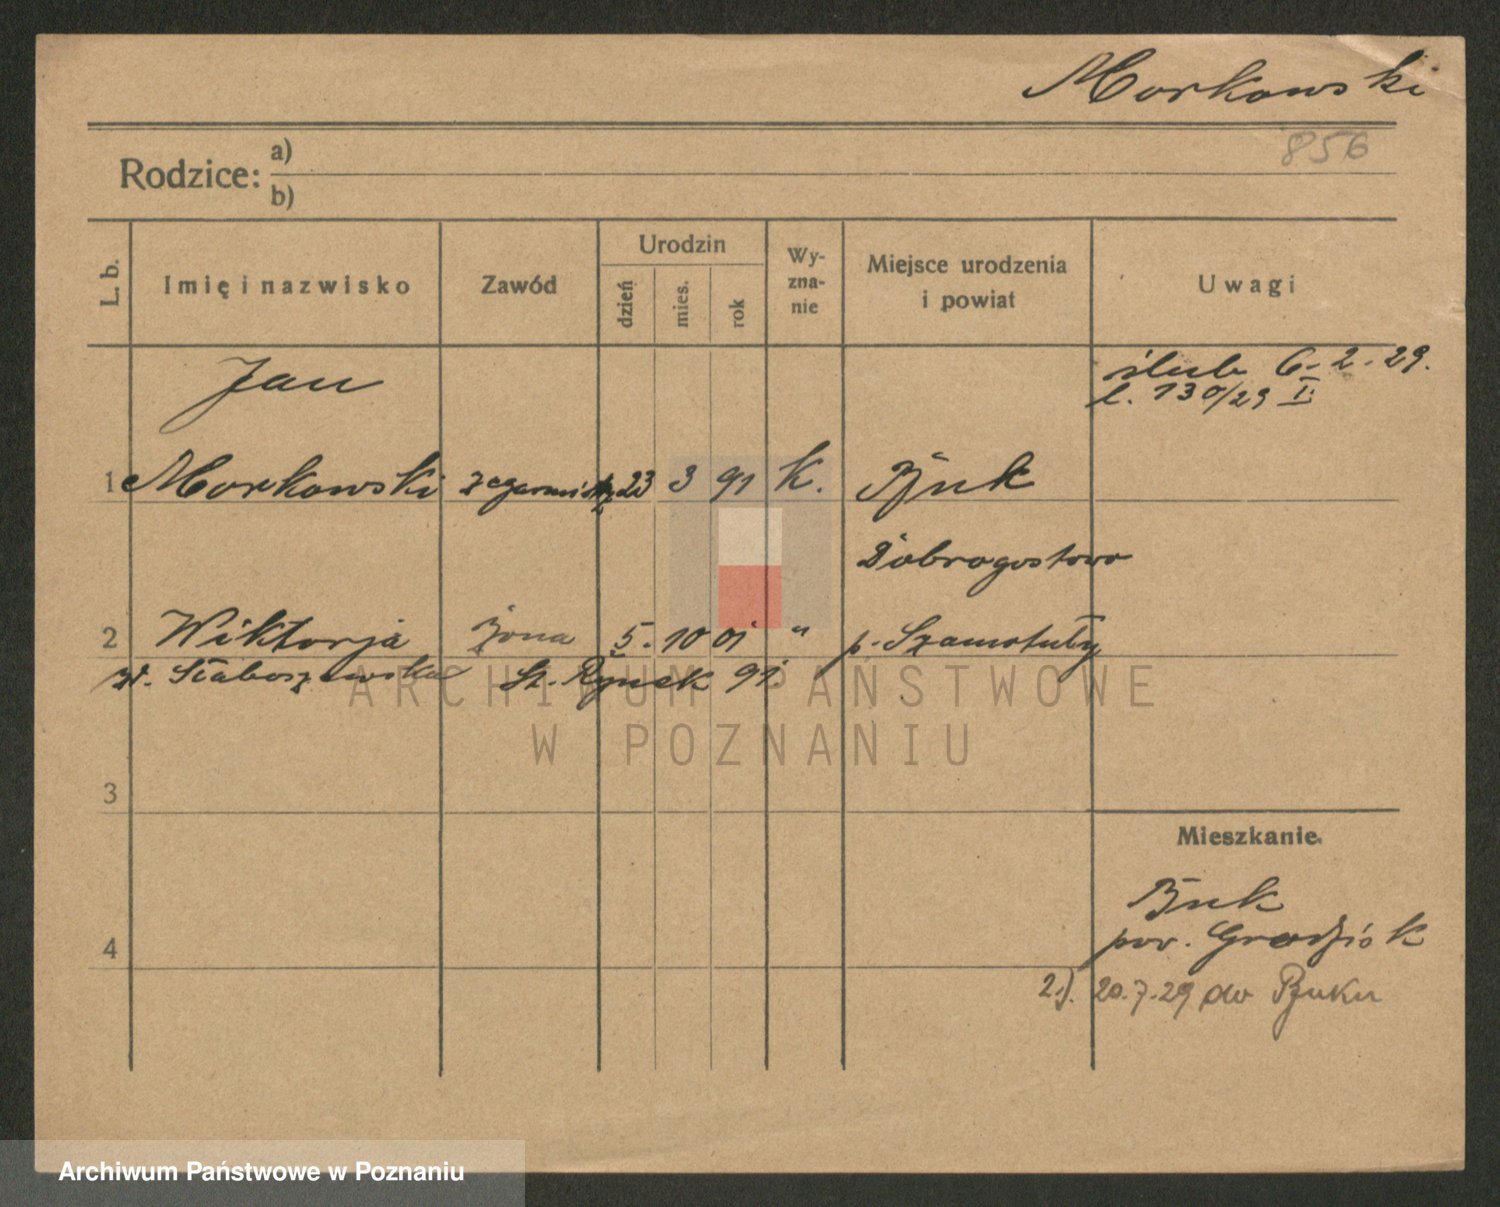 Morkowski
856
Rodzice: a)
b)
L. b.
Imię i nazwisko
Zawód
Urodzin
dzień
mies.
rok
Wy-
zna-
nie
Miejsce urodzenia
i powiat
Uwagi
Jan
ślub 6-2-29.
l. 130/29 I.
1 Morkowski zegarmistrz 23 3 91 K. Buk
Dobrogostowo
2 Wiktorja żona 5. 10 01 " p. Szamotuły
St. Rynek 91
ARCHIWUM PAŃSTWOWE
W POZNANIU
3
Mieszkanie.
Buk
pow. Grodzisk
4
2). 20.7.29 do Buku
Archiwum Państwowe w Poznaniu